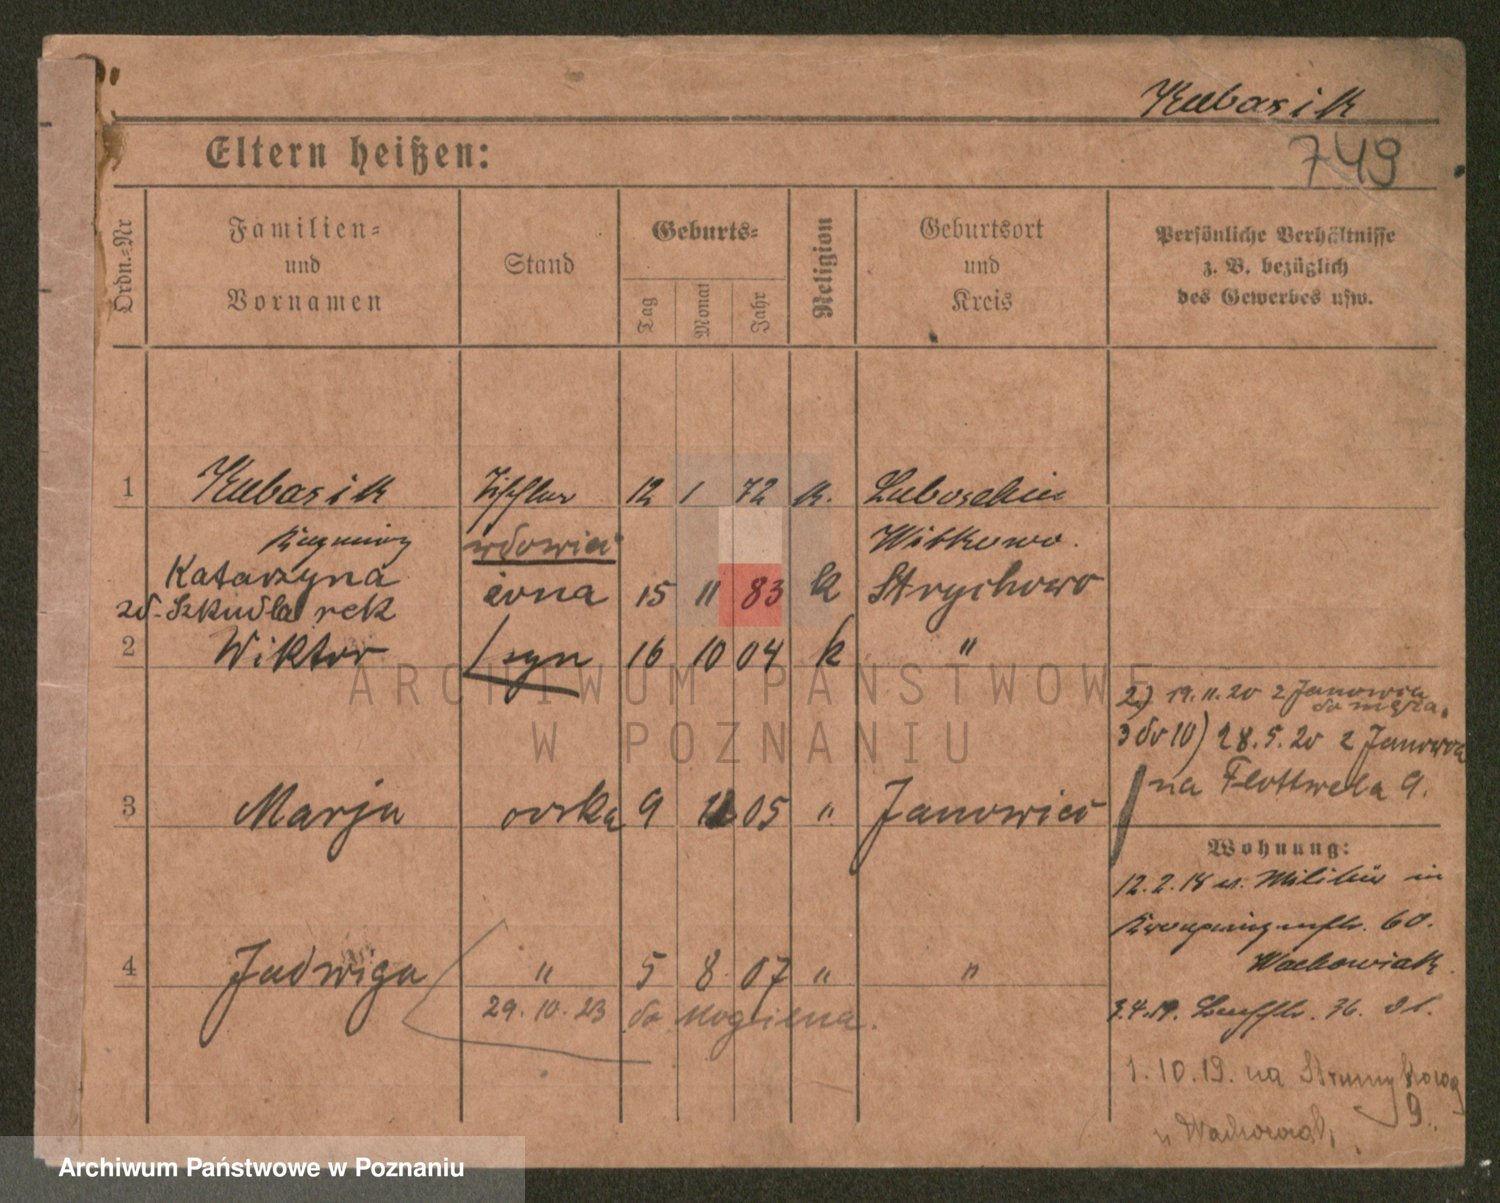 Kubasik
749
Eltern heißen:
Ordn.-Nr
Familien-
und
Vornamen
Stand
Geburts-
Tag
Monat
Jahr
Religion
Geburtsort
und
Kreis
Persönliche Verhältnisse
z. B. bezüglich
des Gewerbes usw.
1 Kubasik Tischler 12 1 72 k.
Witkowo.
Katarzyna żona 15 11 83 k Strychowo
zd. Szkudlarek
2 Wiktor syn 16 10 04 k "
2) 19.11.20 z Janowca
do męża.
3 do 10) 28.5.20 z Janowca
na Flottwela 9.
3 Marja córka 9 05 " Janowiec
Wohnung:
12.2.18 v. Militär in
60.
Wachowiak.
4 Jadwiga " 5 8 07 " "
29.10.23 do Mogilna.
3.4.19.
1.10.19. na Strumykową
9.
u Wachowiak.
ARCHIWUM PAŃSTWOWE
W POZNANIU
Archiwum Państwowe w Poznaniu